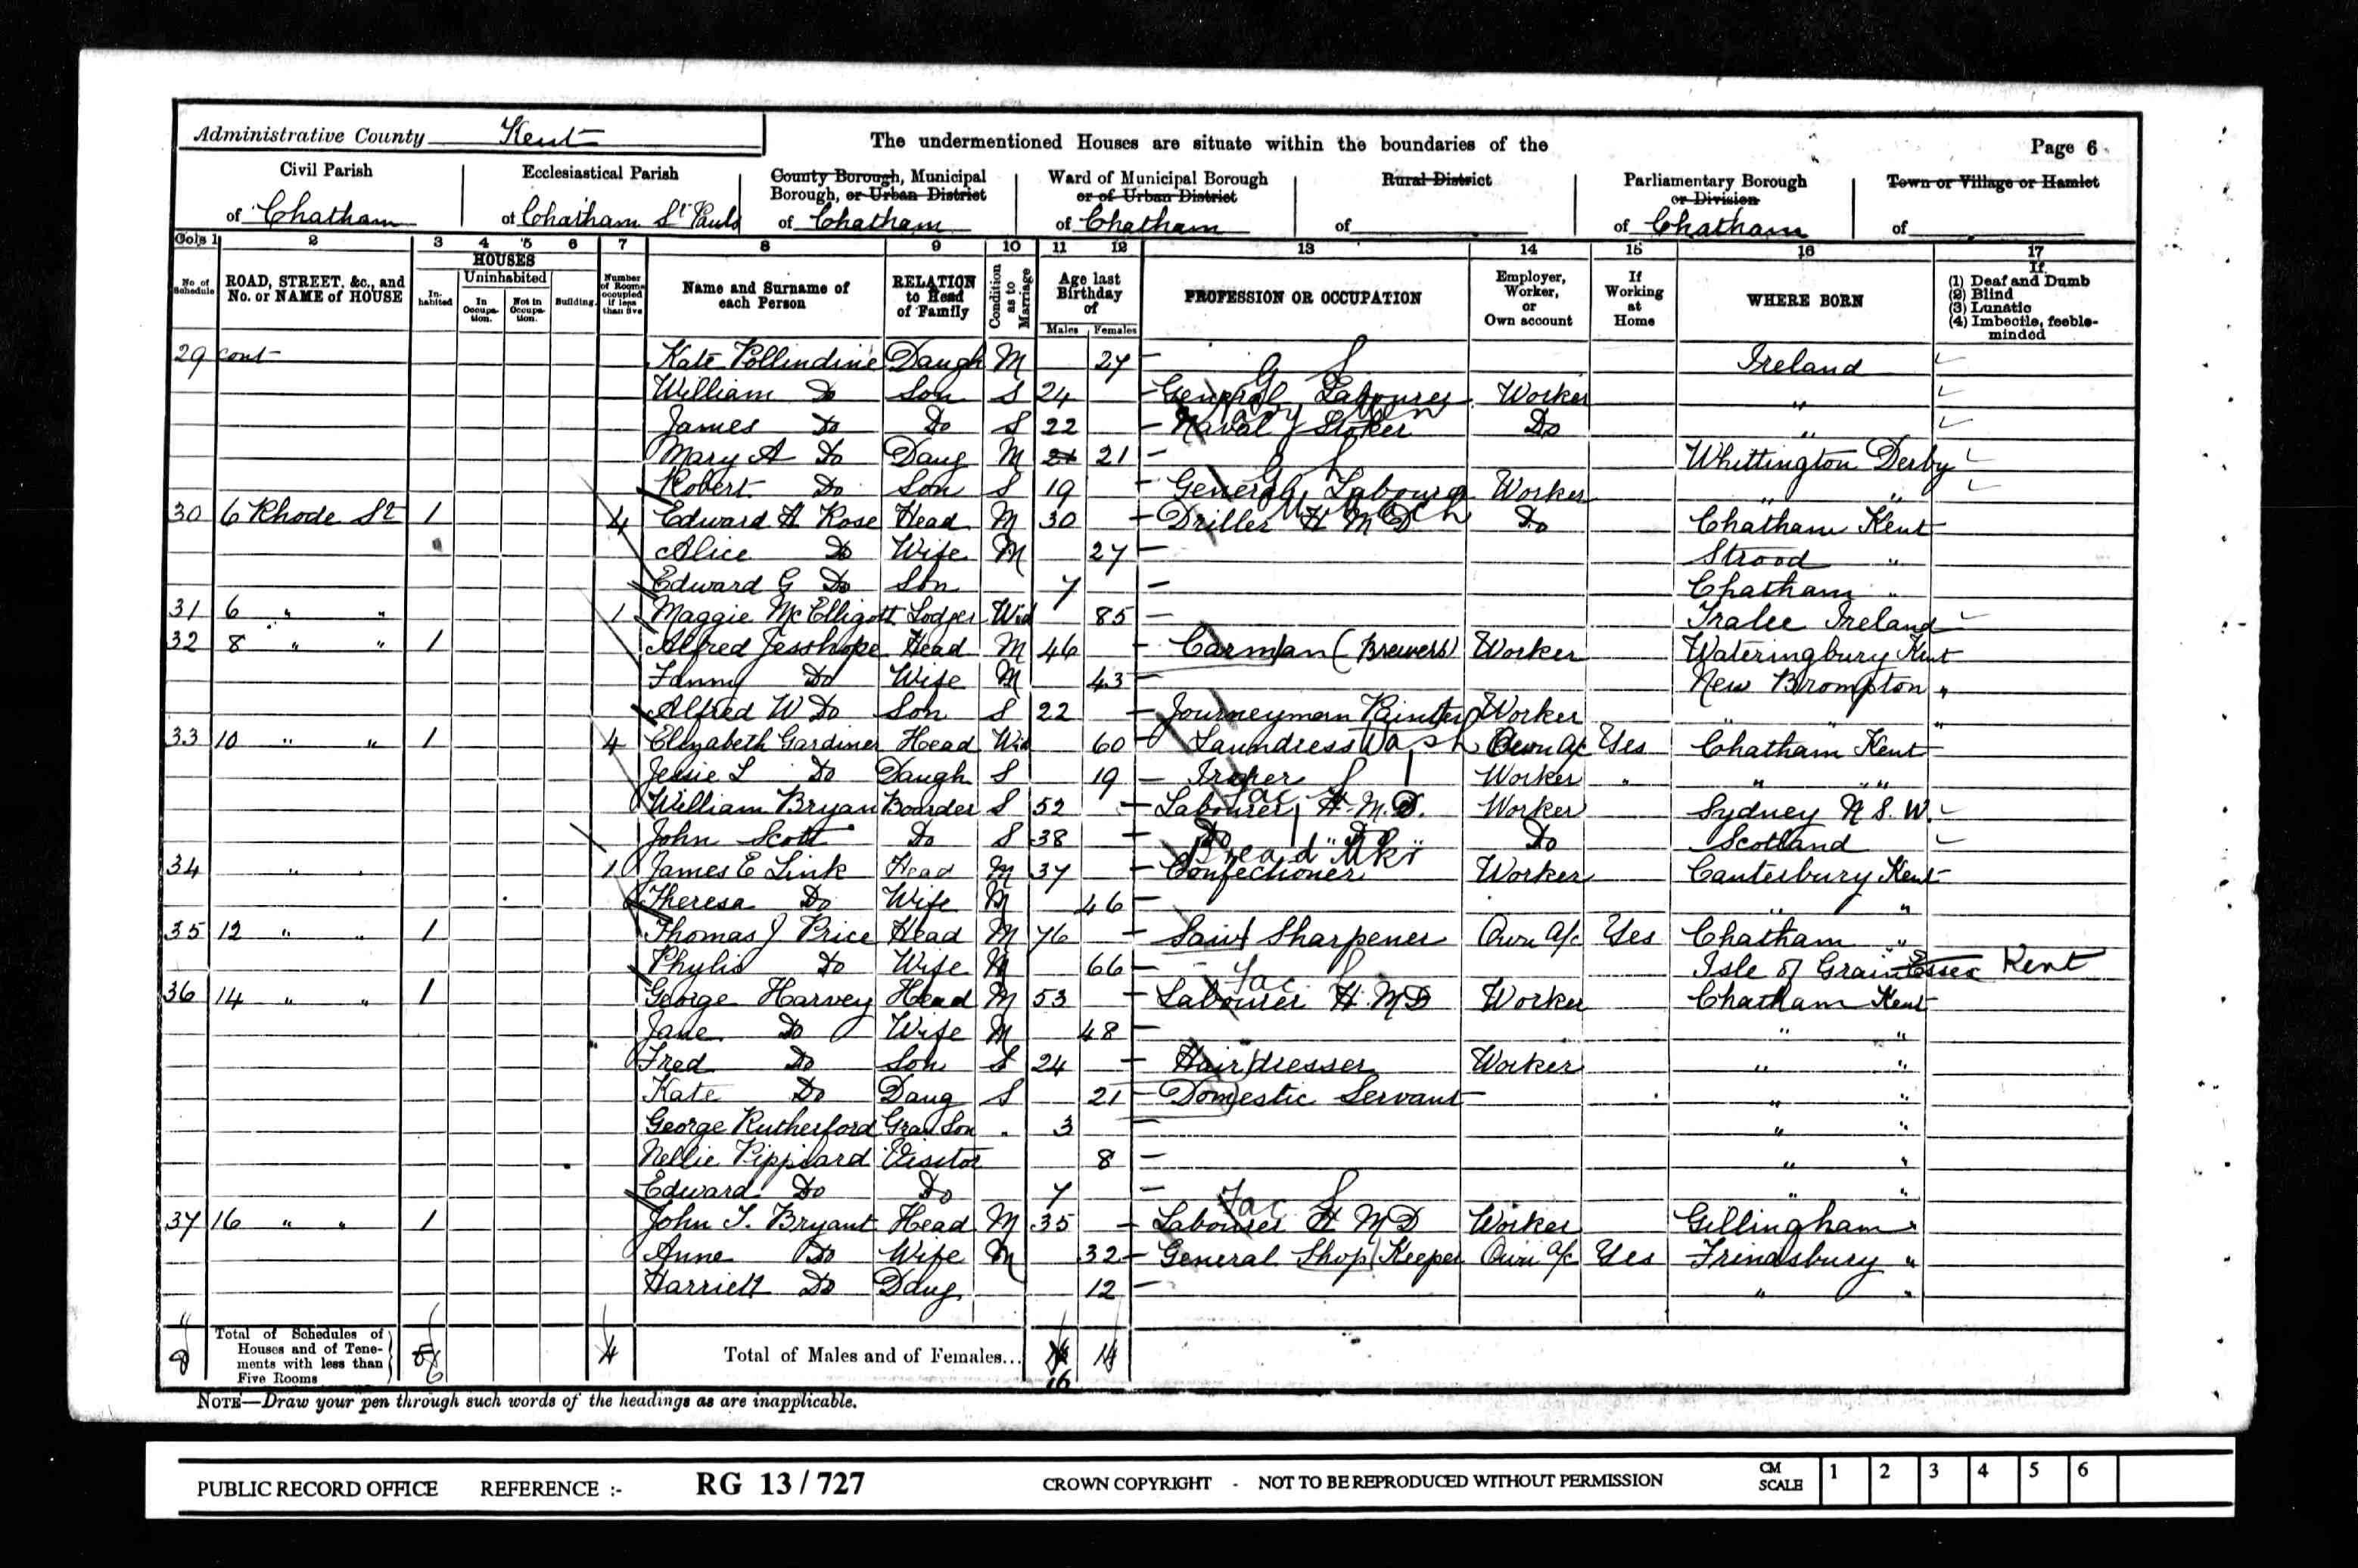 Administrative County Kent The undermentioned Houses are situate within the boundaries of the Page 6
Civil Parish Ecclesiastical Parish County Borough, Municipal Borough, or Urban District Ward of Municipal Borough or of Urban District Rural District Parliamentary Borough or Division Town or Village or Hamlet
of Chatham of Chatham St Pauls of Chatham of Chatham of of Chatham of
Cols 1 2 3 4 5 6 7 8 9 10 11 12 13 14 15 16 17
No of Schedule ROAD, STREET, &c., and No. or NAME of HOUSE HOUSES Inhabited Uninhabited In Occupation. Not in Occupation. Building. Number of Rooms occupied if less than five Name and Surname of each Person RELATION to Head of Family Condition as to Marriage Age last Birthday of Males Females PROFESSION OR OCCUPATION Employer, Worker, or Own account If Working at Home WHERE BORN If (1) Deaf and Dumb (2) Blind (3) Lunatic (4) Imbecile, feeble-minded
29 cont Kate Pollindine Daugh M 27 — Ireland
William Do Son S 24 General Labourer Worker "
James Do Do S 22 Naval Stoker Do "
Mary A Do Daug M 21 21 — Whittington Derby
Robert Do Son S 19 General Labourer Worker " "
30 6 Rhode St 1 4 Edward H Rose Head M 30 Driller H M D Do Chatham Kent
Alice Do Wife M 27 — Strood "
Edward G Do Son 7 — Chatham "
31 6 " " 1 Maggie McElligott Lodger Wid 85 — Tralee Ireland
32 8 " " 1 Alfred Jesshope Head M 46 Carman (Brewers) Worker Wateringbury Kent
Fanny Do Wife M 43 — New Brompton "
Alfred W Do Son S 22 Journeyman Worker " " "
33 10 " " 1 4 Elizabeth Gardiner Head Wid 60 Laundress Wash Own a/c Yes Chatham Kent
Jessie L Do Daugh S 19 Ironer Worker " " "
William Bryan Boarder S 52 Labourer H. M. D. Worker Sydney N. S. W.
John Scott Do S 38 Do Do Do Scotland
34 " 1 James E Link Head M 37 Confectioner Bread Mkr Worker Canterbury Kent
Theresa Do Wife M 46 — " "
35 12 " " 1 Thomas J Price Head M 76 Saw Sharpener Own a/c Yes Chatham "
Phylis Do Wife M 66 — Isle of Grain Essex Kent
36 14 " " 1 George Harvey Head M 53 Labourer H. M D Fac Worker Chatham Kent
Jane Do Wife M 48 — " "
Fred Do Son S 24 Hairdresser Worker " "
Kate Do Daug S 21 Domestic Servant — " "
George Rutherford Gran Son 3 — " "
Nellie Visitor 8 — " "
Edward Do Do 7 — " "
37 16 " " 1 John T. Bryant Head M 35 Labourer H M D Fac Worker Gillingham "
Anne Do Wife M 32 General Shop Keeper Own a/c Yes Frindsbury "
Harriett Do Daug 12 — " "
8 Total of Schedules of Houses and of Tenements with less than Five Rooms 6 4 Total of Males and of Females... 16 14
NOTE—Draw your pen through such words of the headings as are inapplicable.
PUBLIC RECORD OFFICE REFERENCE :- RG 13/727 CROWN COPYRIGHT - NOT TO BE REPRODUCED WITHOUT PERMISSION CM SCALE 1 2 3 4 5 6